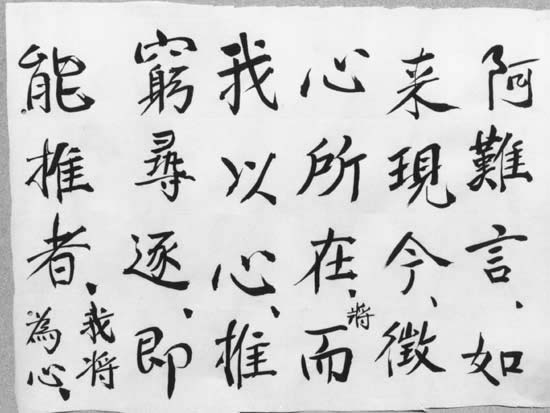 阿難言、如
来現今、徵
心所在、而將
我以心、推
窮尋逐、即
能推者、我將
為心、